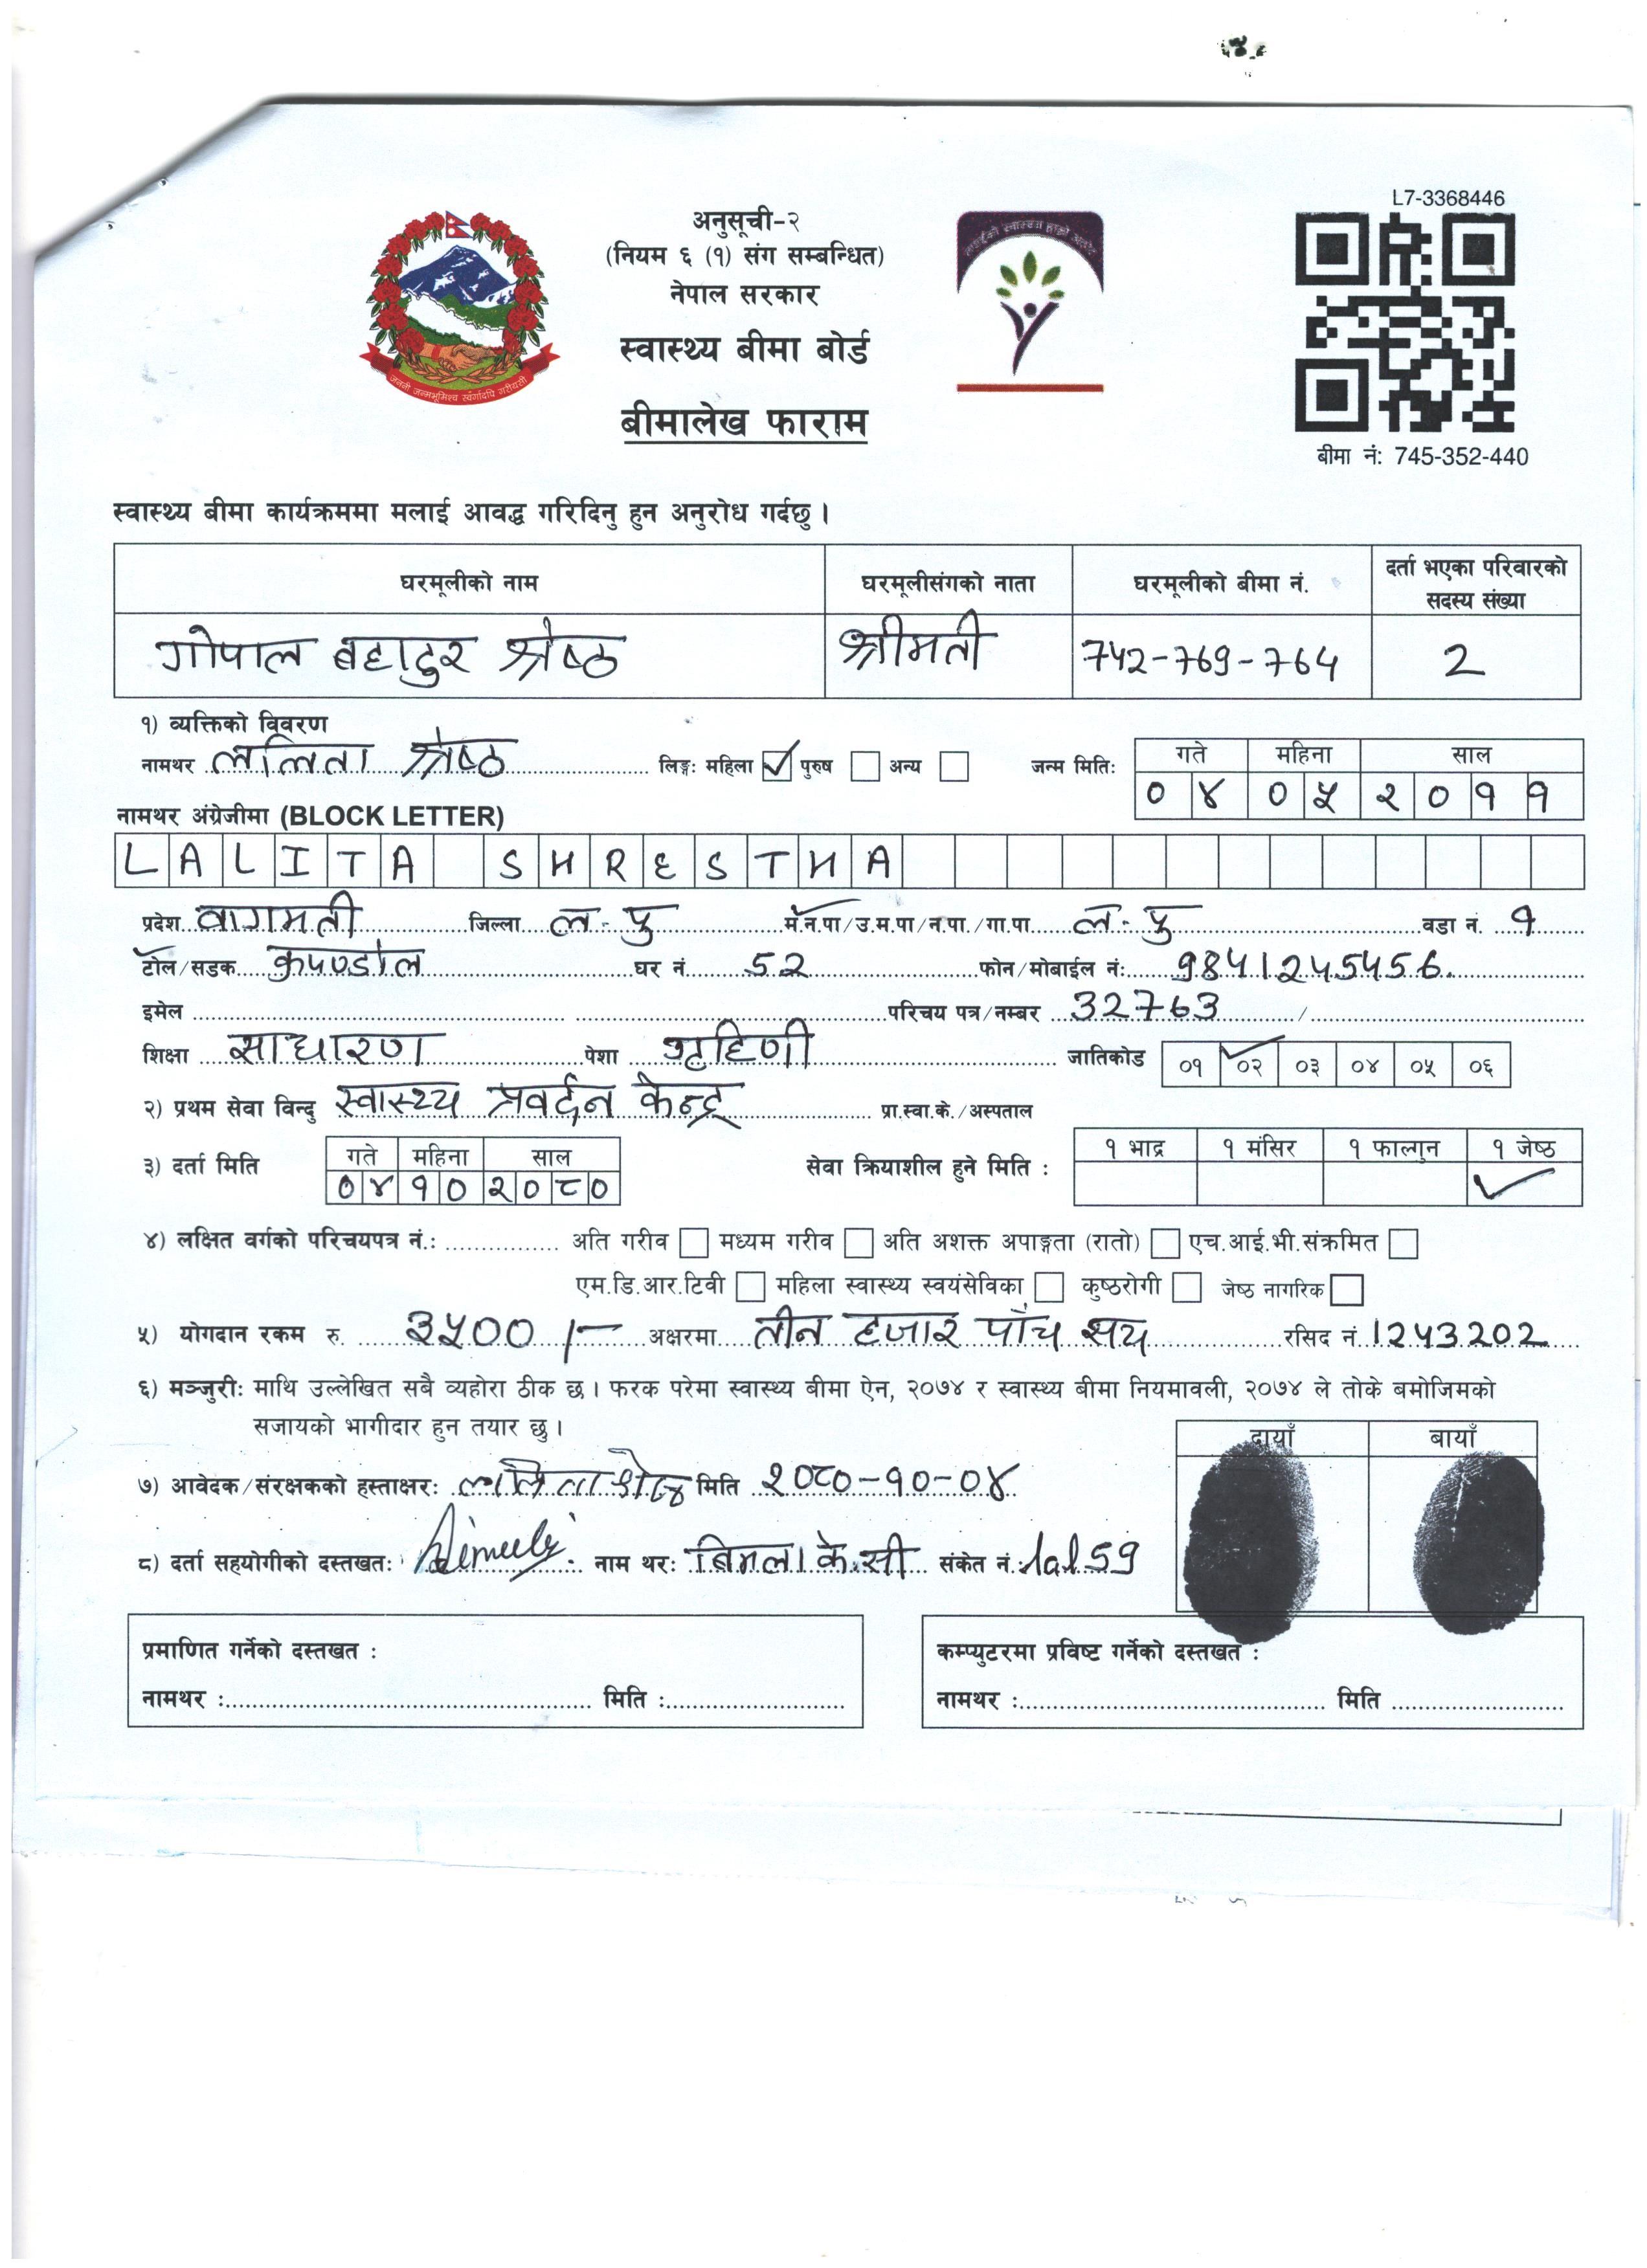 L7-3368446
अनुसूची-२
(नियम ६ (१) संग सम्बन्धित)
नेपाल सरकार
स्वास्थ्य बीमा बोर्ड
बीमालेख फाराम
जननी जन्मभूमिश्च स्वर्गादपि गरीयसी
बीमा नं: 745-352-440
स्वास्थ्य बीमा कार्यक्रममा मलाई आवद्ध गरिदिनु हुन अनुरोध गर्दछु ।
घरमूलीको नाम घरमूलीसंगको नाता घरमूलीको बीमा नं. दर्ता भएका परिवारको सदस्य संख्या
गोपाल बहादुर श्रेष्ठ श्रीमती 742-769-764 2
१) व्यक्तिको विवरण
नामथर ललिता श्रेष्ठ लिङ्ग: महिला पुरुष अन्य जन्म मितिः गते महिना साल
०४ ०५ २०११
नामथर अंग्रेजीमा (BLOCK LETTER)
LALITA SHRESTHA
प्रदेश वागमती जिल्ला ल.पु म.न.पा/उ.म.पा/न.पा./गा.पा. ल.पु वडा नं. १
टोल/सडक कुपण्डोल घर नं 52 फोन/मोबाईल नं: 9841245456
इमेल परिचय पत्र/नम्बर 32763 /
शिक्षा साधारण पेशा गृहिणी जातिकोड ०१ ०२ ०३ ०४ ०५ ०६
२) प्रथम सेवा विन्दु स्वास्थ्य प्रवर्दन केन्द्र प्रा.स्वा.के./अस्पताल
३) दर्ता मिति गते महिना साल सेवा क्रियाशील हुने मिति : १ भाद्र १ मंसिर १ फाल्गुन १ जेष्ठ
०४ १० २०८०
४) लक्षित वर्गको परिचयपत्र नं.: अति गरीव मध्यम गरीव अति अशक्त अपाङ्गता (रातो) एच.आई.भी.संक्रमित
एम.डि.आर.टिवी महिला स्वास्थ्य स्वयंसेविका कुष्ठरोगी जेष्ठ नागरिक
५) योगदान रकम रु. ३५०० /- अक्षरमा तीन हजार पाँच सय रसिद नं 1243202
६) मञ्जुरी: माथि उल्लेखित सबै व्यहोरा ठीक छ । फरक परेमा स्वास्थ्य बीमा ऐन, २०७४ र स्वास्थ्य बीमा नियमावली, २०७४ ले तोके बमोजिमको
सजायको भागीदार हुन तयार छु ।
दायाँ बायाँ
७) आवेदक/संरक्षकको हस्ताक्षर: ललिता श्रेष्ठ मिति २०८०-१०-०४
८) दर्ता सहयोगीको दस्तखत: नाम थर: बिमला के.सी संकेत नं.: lal59
प्रमाणित गर्नेको दस्तखत : कम्प्युटरमा प्रविष्ट गर्नेको दस्तखत :
नामथर : मिति : नामथर : मिति